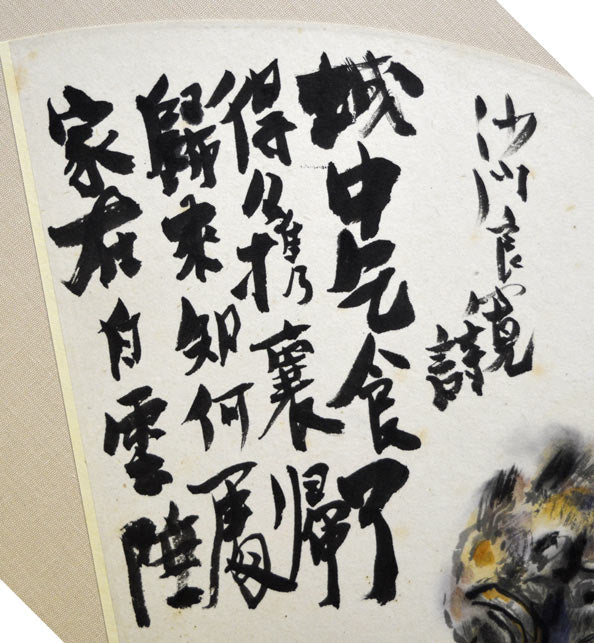 沙門良寛
詩
城中乞食了
得々携囊帰
歸來知何處
家在白雲陲